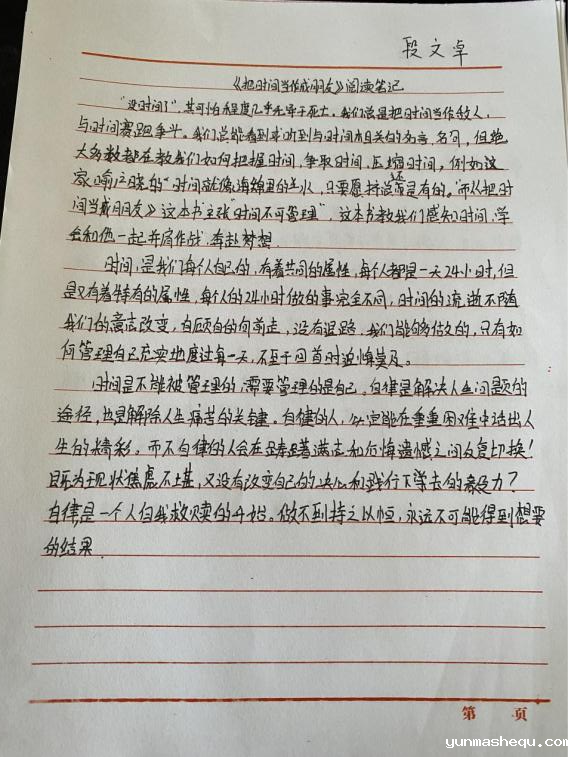 段文卓
《把时间当作成朋友》阅读笔记
"没时间了",其可怕程度几乎无异于死亡。我们总是把时间当作敌人,
与时间赛跑争斗。我们总能看到或听到与时间相关的名言、名句,但绝
大多数都在教我们如何把握时间、争取时间、压缩时间,例如这
家喻户晓的"时间就像海绵里的水,只要愿挤总还是有的。"而《把时
间当成朋友》这本书主张"时间不可管理",这本书教我们感知时间,学
会和他一起并肩作战,奔赴梦想.
时间,是我们每个人自己的,有着共同的属性,每个人都是一天24小时,但
是又有着特有的属性,每个人的24小时做的事完全不同,时间的流逝不随
我们的意志改变,自顾自的向前走,没有退路,我们能够做的,只有如
何管理自己充实地度过每一天,不至于回首时追悔莫及。
时间是不能被管理的,需要管理的是自己。自律是解决人生问题的
途径,也是解除人生痛苦的关键。自律的人,必定能在重重困难中活出人
生的精彩。而不自律的人会在踌躇满志和后悔遗憾之间反复切换!
既为现状焦虑不堪,又没有改变自己的决心和践行下学去的毅力?
自律,是一个人自我救赎的开始。做不到持之以恒,永远不可能得到想要
的结果.
第 页
yunmashequ.com